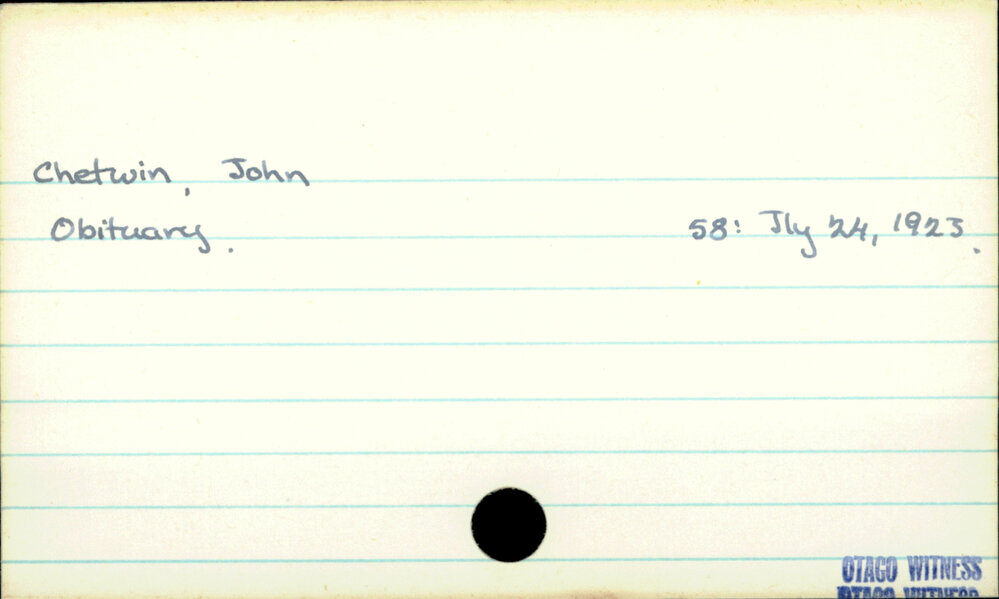 Chetwin, John
Obituary. 58: Jly 24, 1923.
OTAGO WITNESS
OTAGO WITNESS